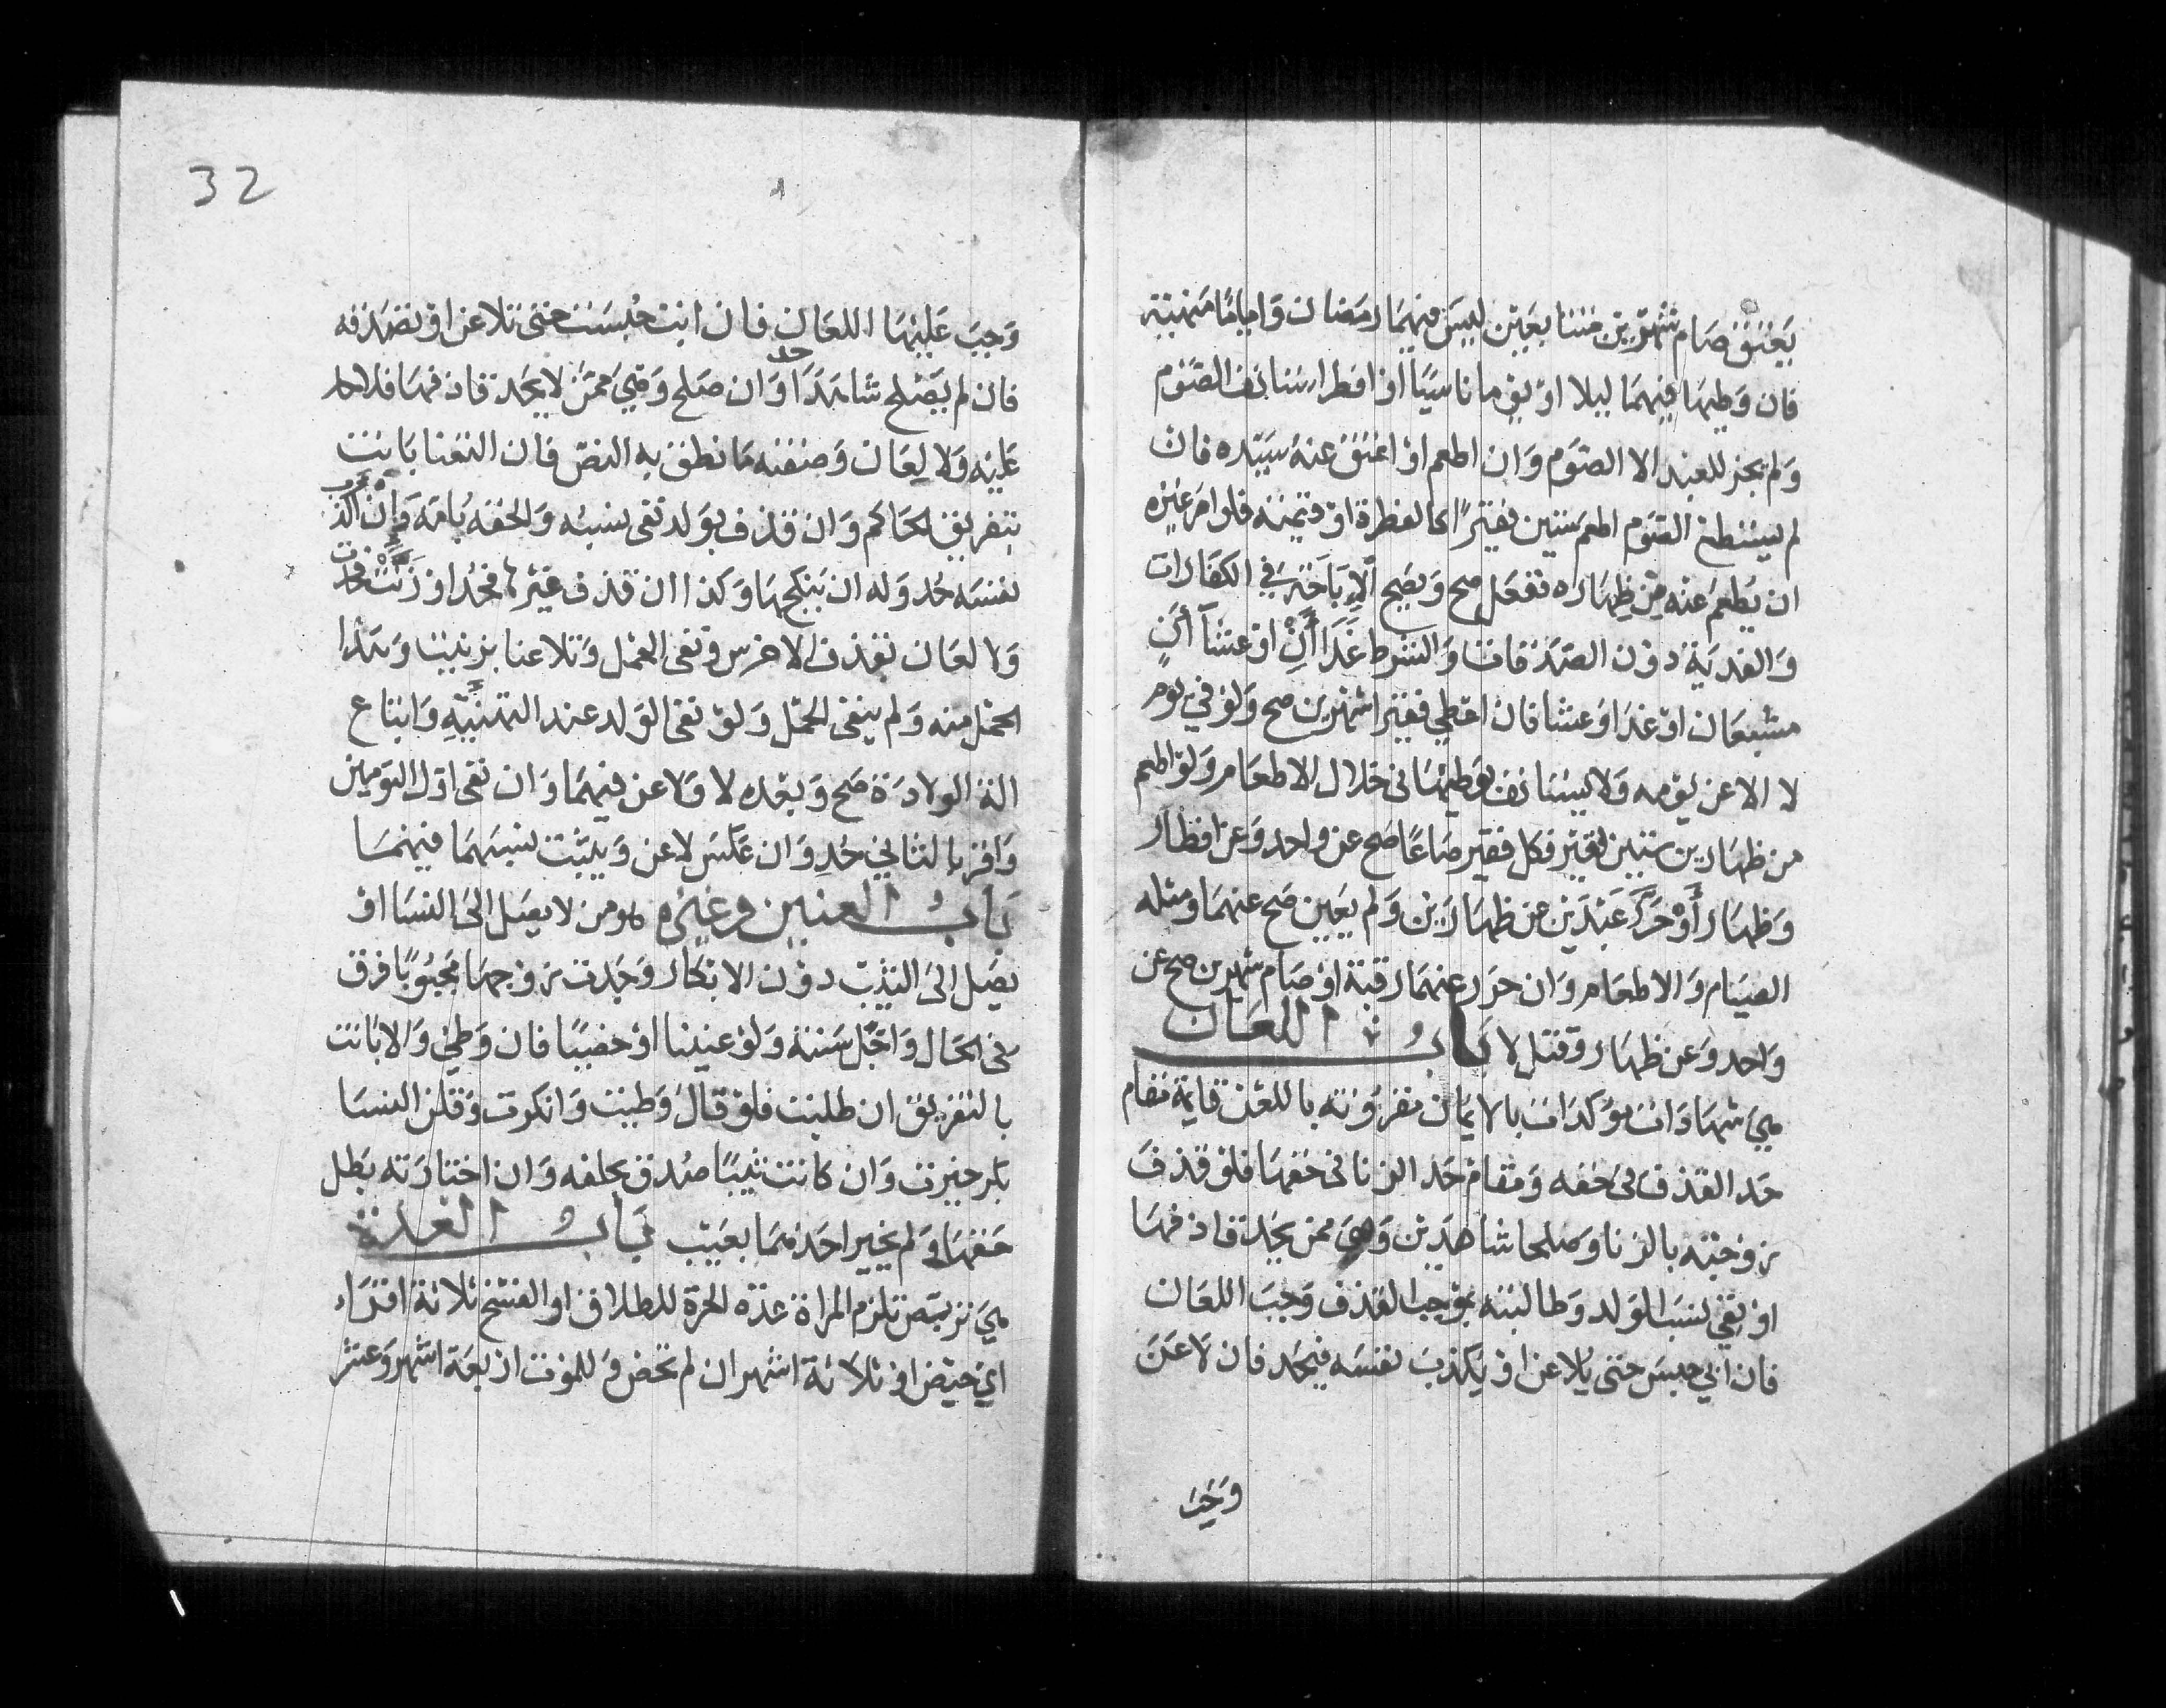 يعتق صام شهرين متتابعين ليس فيهما رمضان واياما منهية
فان وطيها فيهما ليلا او يوما ناسيا او افطر استانف الصوم
ولم يجز للعبد الا الصوم وان اطعم او اعتق عنه سيده فان
لم يستطع الصوم اطعم ستين فقيرا كالفطرة او قيمته فلو امر غيره
ان يطعم عنه من ظهاره ففعل صح وتصح الاباحة في الكفارات
والفدية دون الصدقات والشرط غداآن او عشاآن
مشبعان او غدا وعشا فان اعطي فقيرا شهرين صح ولو في يوم
لا الا عن يومه ولا يستانف بوطيها في خلال الاطعام ولو اطعم
من ظهارين ستين فقيرا كل فقير صاعا صح عن واحد وعن افطار
وظهار او حرر عبدين عن ظهارين ولم يعين صح عنهما ومثله
الصيام والاطعام وان حرر عنهما رقبة او صام شهرين صح عن
واحد وعن ظهار وقتل لا باب اللعان
هي شهادات موكدات بالايمان مقرونة باللعن قايمة مقام
حد القذف في حقه ومقام حد الزنا في حقها فلو قذف
زوجته بالزنا وصلحا شاهدين وهي ممن يحد قاذفها
او نفي نسب الولد وطالبته بموجب القذف وجب اللعان
فان ابي حبس حتى يلاعن او يكذب نفسه فيحد فان لاعن
وجب
32
وجب عليها اللعان فان ابت حبست حتى تلاعن او تصدقه
فان لم يصلح شاهدا حد وان صلح وهي ممن لا يحد قاذفها فلا حد
عليه ولا لعان وصفته ما نطق به النص فان التعنا بانت
بتفريق الحاكم وان قذف بولد نفى نسبه والحقه بامه وان اكذب
نفسه حد وله ان ينكحها وكذا ان قذف غيرها فحد او زنت فحدت
ولا لعان بقذف الاخرس ونفى الحمل وتلاعنا بزنيت وهذا
الحمل منه ولم ينفى الحمل ولو نفى الولد عند التهنية وابتاع
الة الولادة صح وبعده لا ولاعن فيهما وان نفى اول التومين
واقر بالثاني حد وان عكس لاعن ويثبت نسبهما فيهما
باب العنين وغيره هو من لا يصل الى النسا او
يصل الى الثيب دون الابكار وجدت زوجها مجبوبا فرق
في الحال واجل سنة ولو عنينا او خصيا فان وطي والا بانت
بالتفريق ان طلبت فلو قال وطيت وانكرت وقلن النسا
بكر خيرت وان كانت ثيبا صدق بحلفه وان اختارته بطل
حقها ولم يخير احدهما بعيب باب العدة
هي تربص تلزم المراة عدة الحرة للطلاق او الفسخ ثلاثة اقراء
اي حيض او ثلاثة اشهر ان لم تحض وللموت اربعة اشهر وعشر